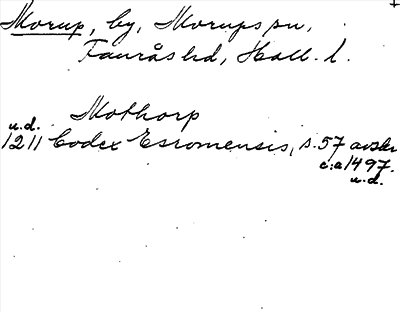 Morup, by, Morups sn,
Fauråshd, Hall. l.
Mothorp
u.d.
1211 Codex Esromensis, s. 57 avskr
c:a 1497.
u.d.